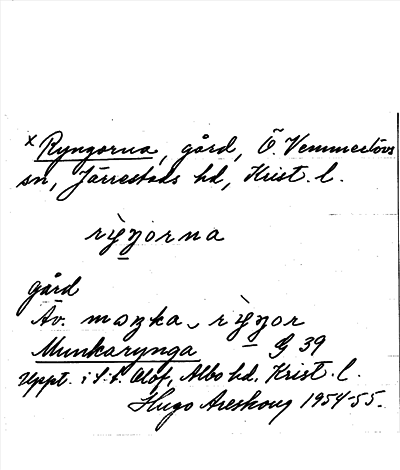 x Ryngorna, gård, Ö. Vemmerlövs
sn, Järrestads hd, Krist. l.
rỳŋorna
gård
Äv. maŋka rỳŋor
Munkarynga G 39
Uppt. i S:t Olof, Albo hd, Krist. l.
Hugo Areskoug 1954-55.